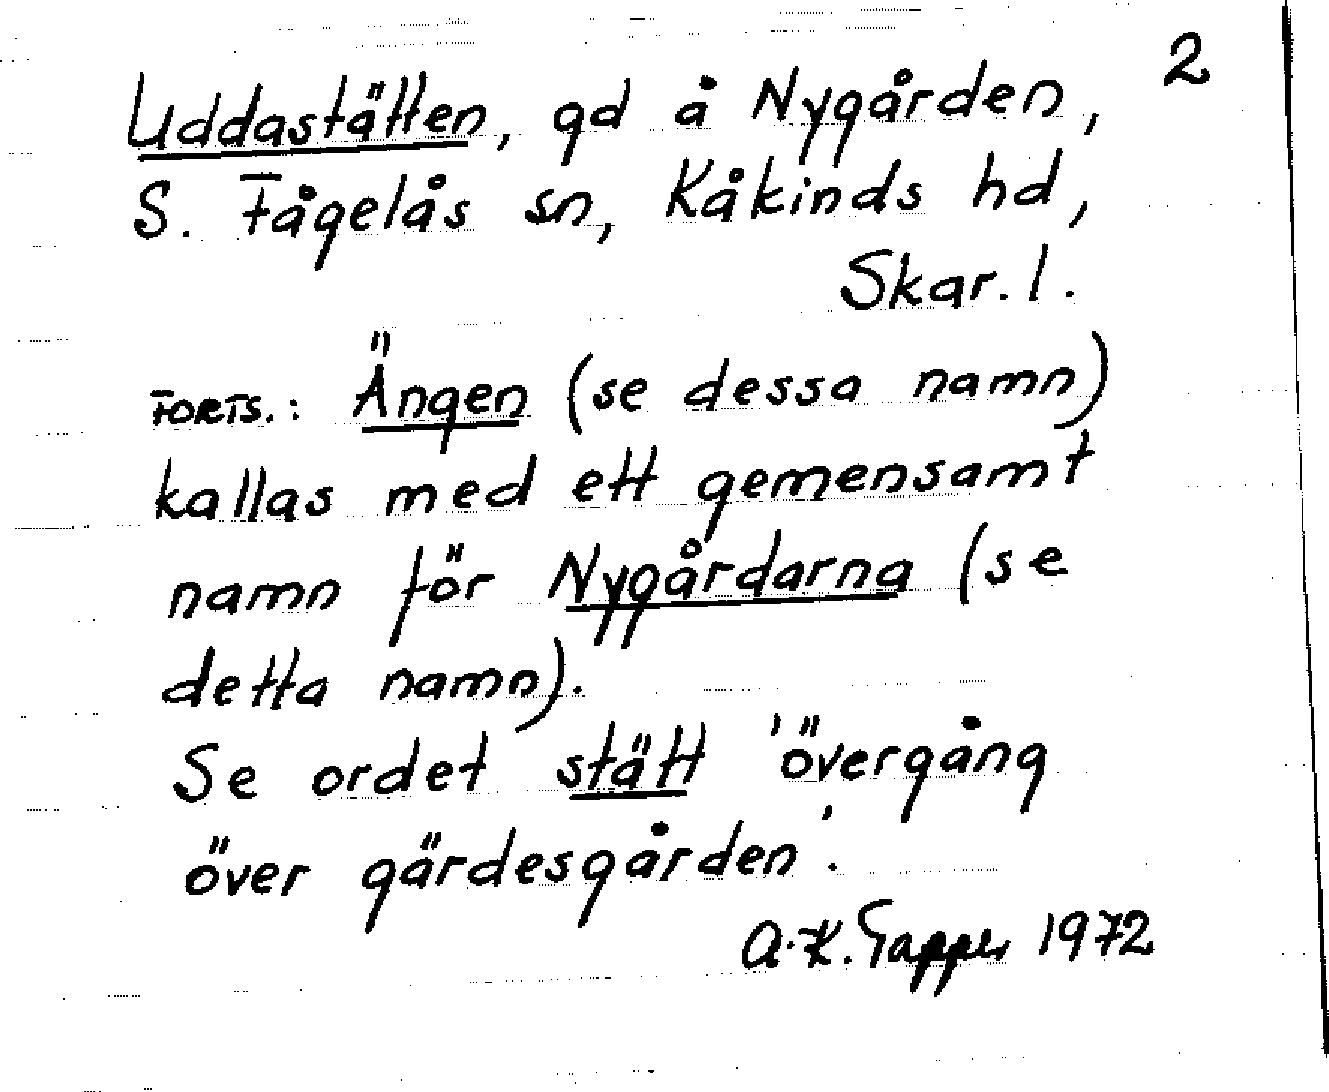 2
Uddastätten, gd å Nygården,
S. Fågelås sn, Kåkinds hd,
Skar. l.
FORTS.: Ängen (se dessa namn)
kallas med ett gemensamt
namn för Nygårdarna (se
detta namn).
Se ordet stätt 'övergång
över gärdesgården'.
A.-K. Tapper 1972